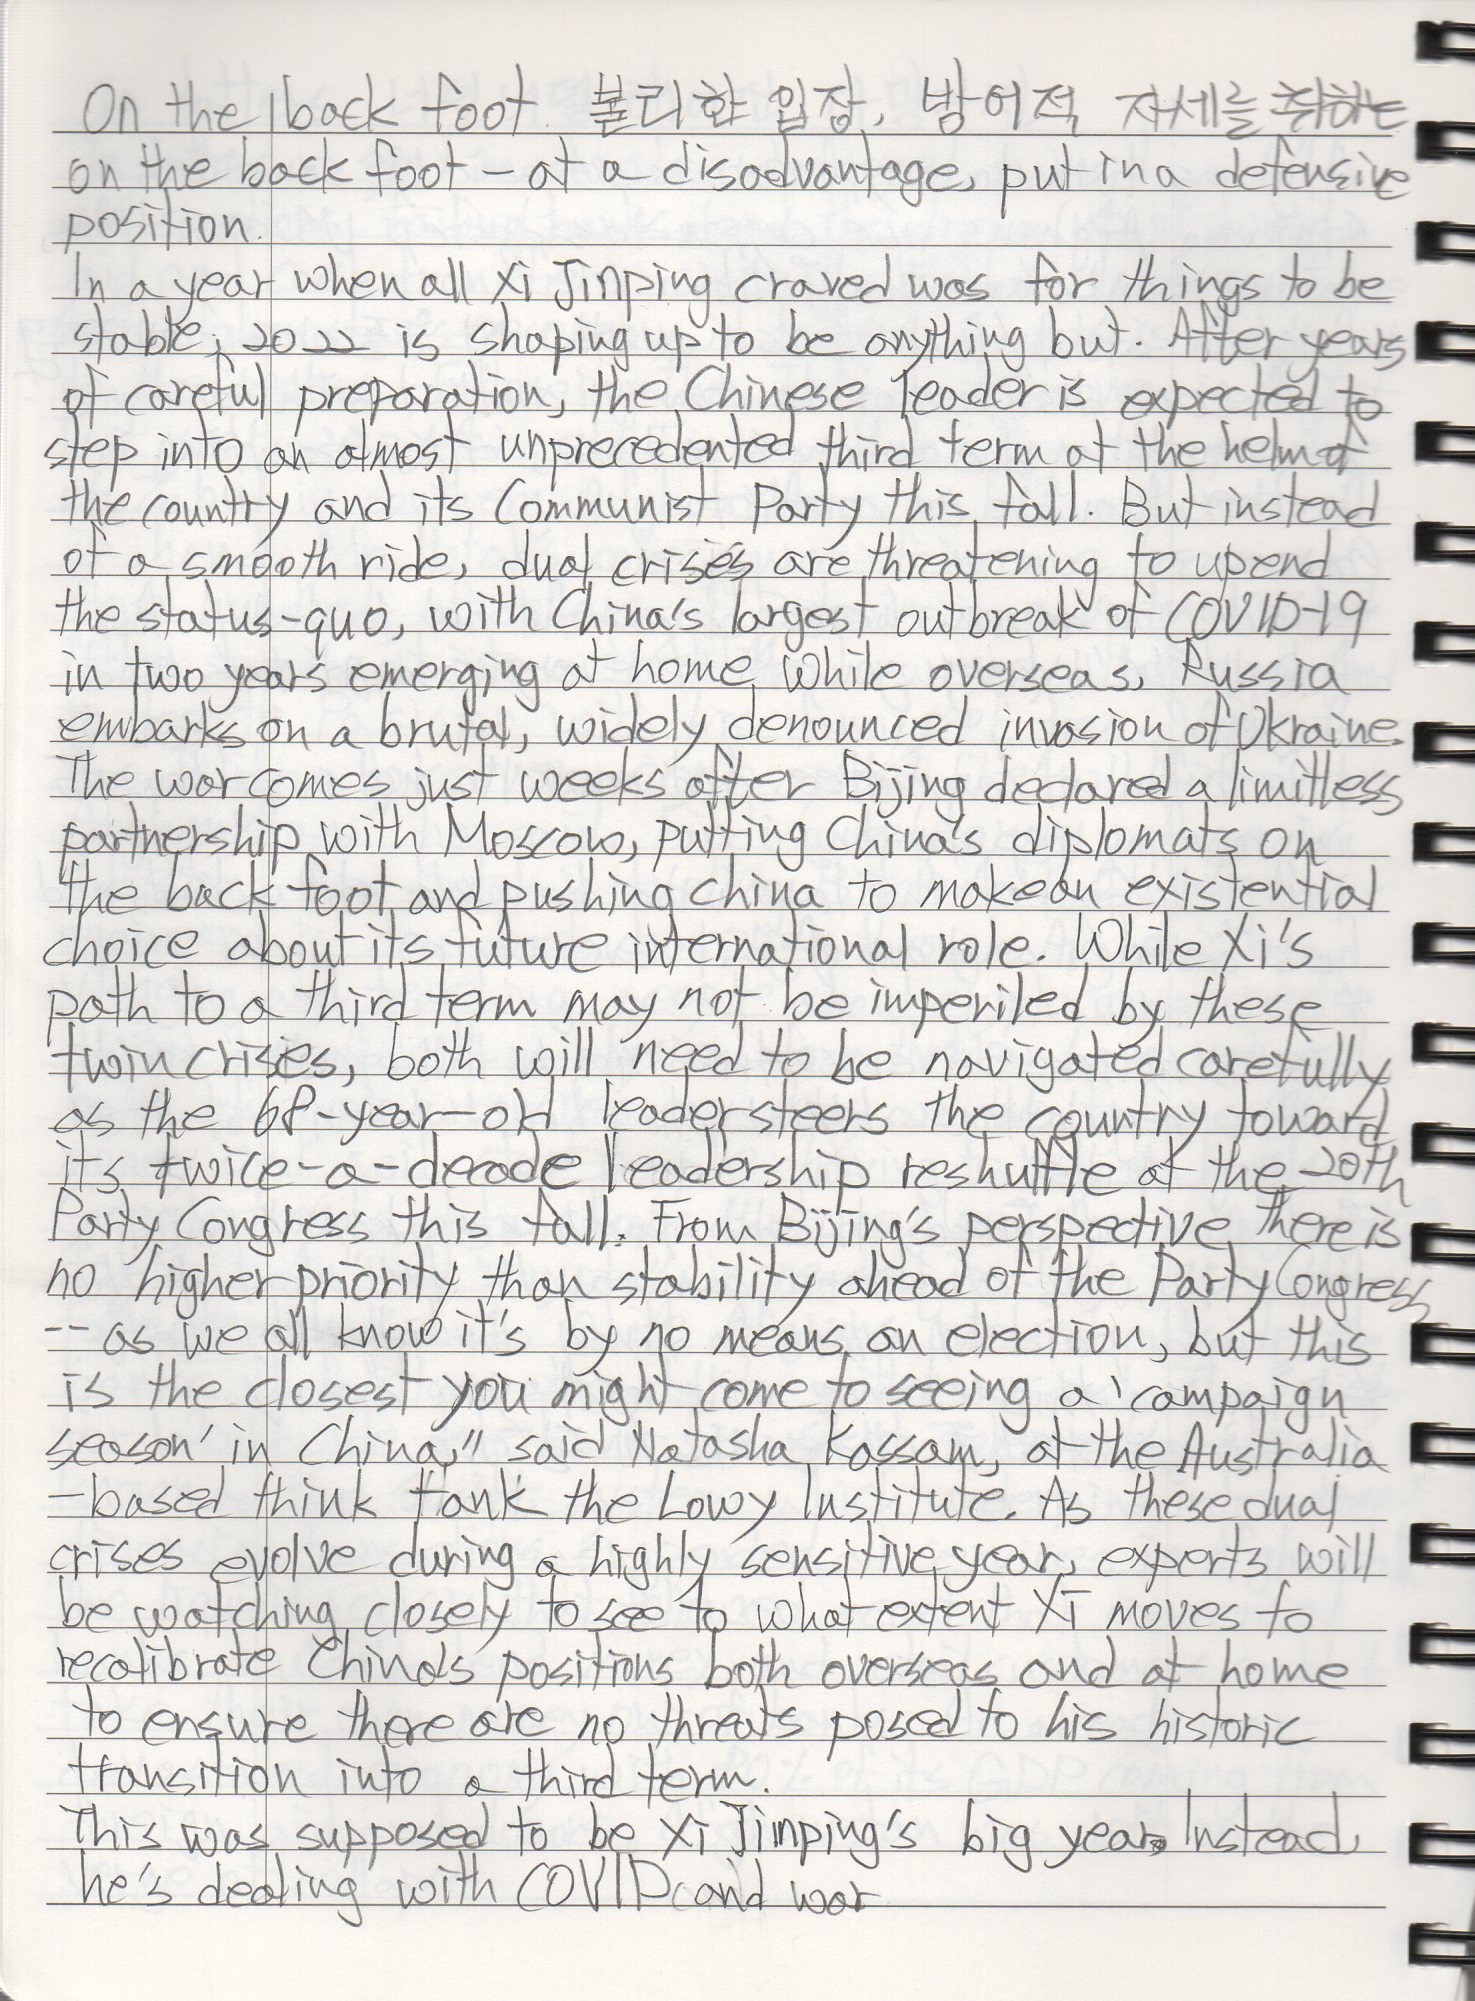 On the back foot 불리한 입장, 방어적 자세를 취하는
on the back foot - at a disadvantage, put in a defensive
position.
In a year when all Xi Jinping craved was for things to be
stable, 2022 is shaping up to be anything but. After years
of careful preparation, the Chinese leader is expected to
step into an almost unprecedented third term at the helm of
the country and its Communist Party this fall. But instead
of a smooth ride, dual crises are threatening to upend
the status-quo, with China's largest outbreak of COVID-19
in two years emerging at home, while overseas, Russia
embarks on a brutal, widely denounced invasion of Ukraine.
The war comes just weeks after Bijing declared a limitless
partnership with Moscow, putting China's diplomats on
the back foot and pushing China to make an existential
choice about its future international role. While Xi's
path to a third term may not be imperiled by these
twin crises, both will need to be navigated carefully
as the 68-year-old leader steers the country toward
its twice-a-decade leadership reshuffle at the 20th
Party Congress this fall. From Bijing's perspective, there is
no higher priority than stability ahead of the Party Congress
-- as we all know it's by no means an election, but this
is the closest you might come to seeing a 'campaign
season' in China," said Natasha Kassam, at the Australia
-based think tank the Lowy Institute. As these dual
crises evolve during a highly sensitive year, experts will
be watching closely to see to what extent Xi moves to
recalibrate China's positions both overseas and at home
to ensure there are no threats posed to his historic
transition into a third term.
This was supposed to be Xi Jinping's big year. Instead,
he's dealing with COVID and war